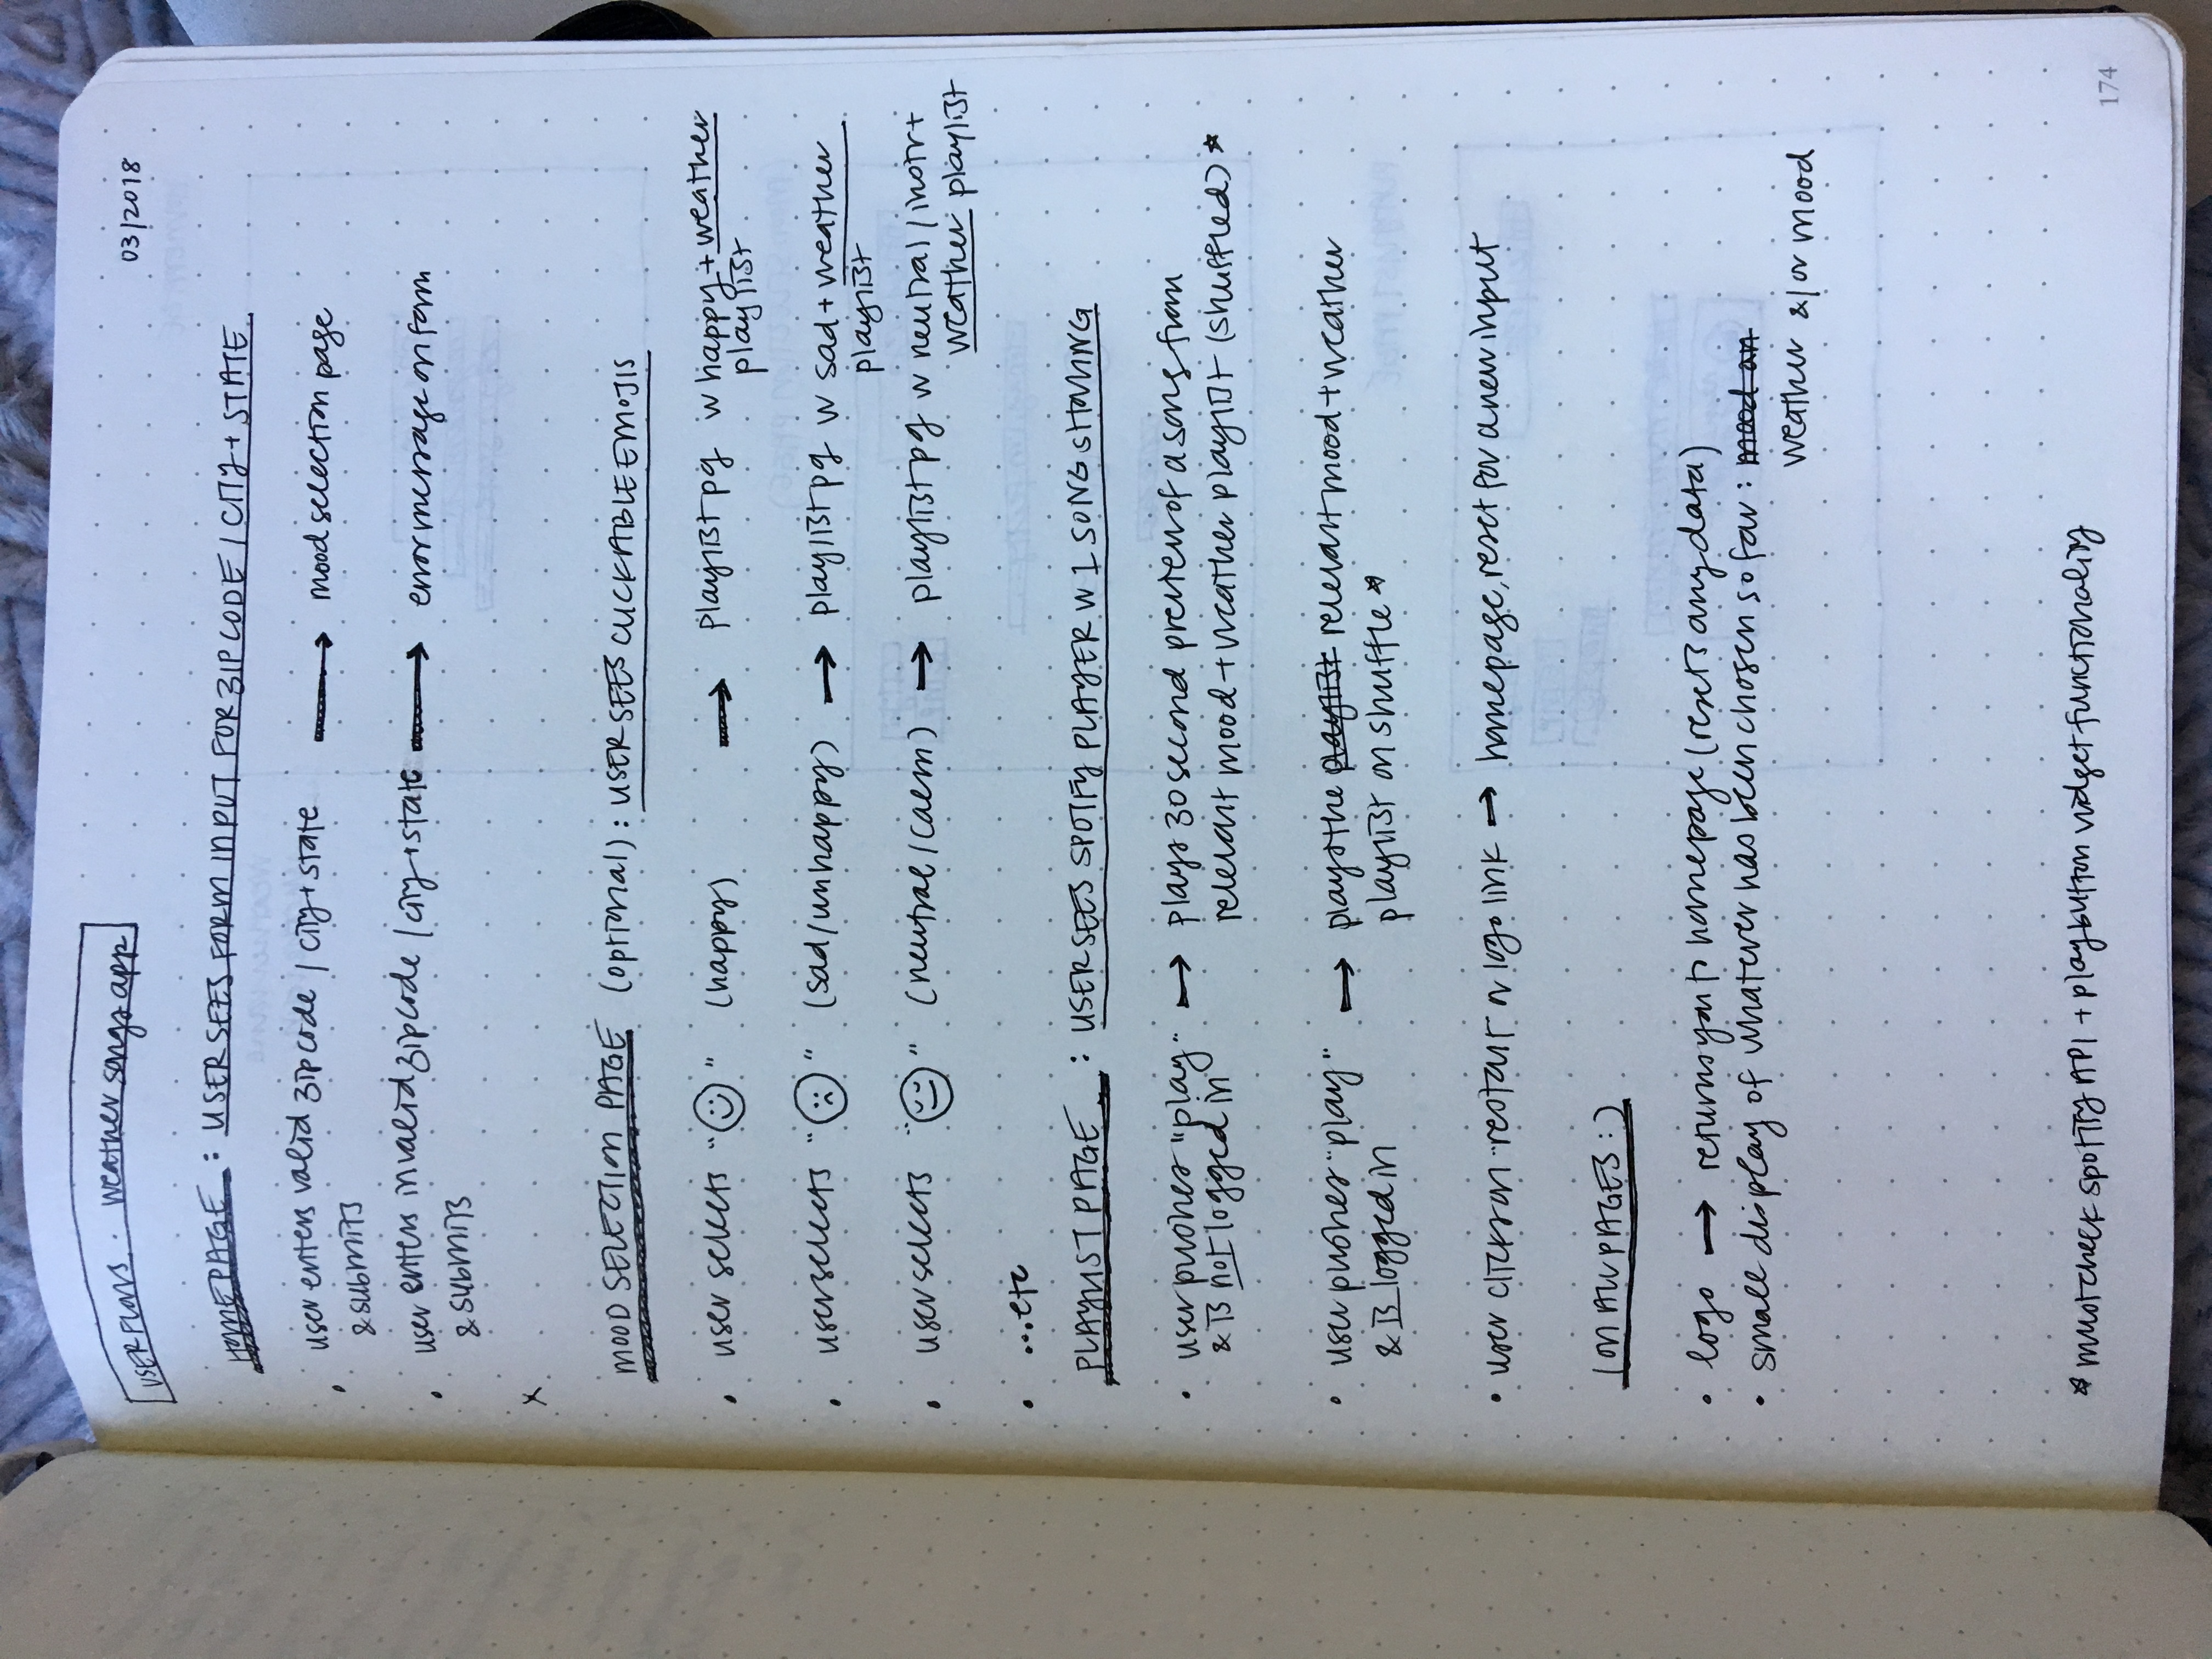 USER FLOWS · weather songs app
03/2018
HOMEPAGE : USER SEES FORM INPUT FOR ZIP CODE / CITY + STATE
· user enters valid zipcode / city + state → mood selection page
& submits
· user enters invalid zipcode / city + state → error message on form
& submits
x
MOOD SELECTION PAGE (optional) : USER SEES CLICKABLE EMOJIS
· user selects "☺" (happy) → playlist pg w happy + weather
playlist
· user selects "☹" (sad/unhappy) → playlist pg w sad + weather
playlist
· user selects "😌" (neutral/calm) → playlist pg w neutral / instr +
weather playlist
· ...etc
PLAYLIST PAGE : USER SEES SPOTIFY PLAYER W 1 SONG SHOWING
· user pushes "play" → plays 30 second preview of a song from
& is not logged in relevant mood + weather playlist (shuffled) *
· user pushes "play" → plays the playlist relevant mood + weather
& is logged in playlist on shuffle *
· user clicks on "restart" or logo link → homepage, reset for a new input
(ON ALL PAGES:)
· logo → returns you to homepage (resets any data)
· small display of whatever has been chosen so far : mood an
weather &/or mood
* must check spotify API + play button widget functionality
174